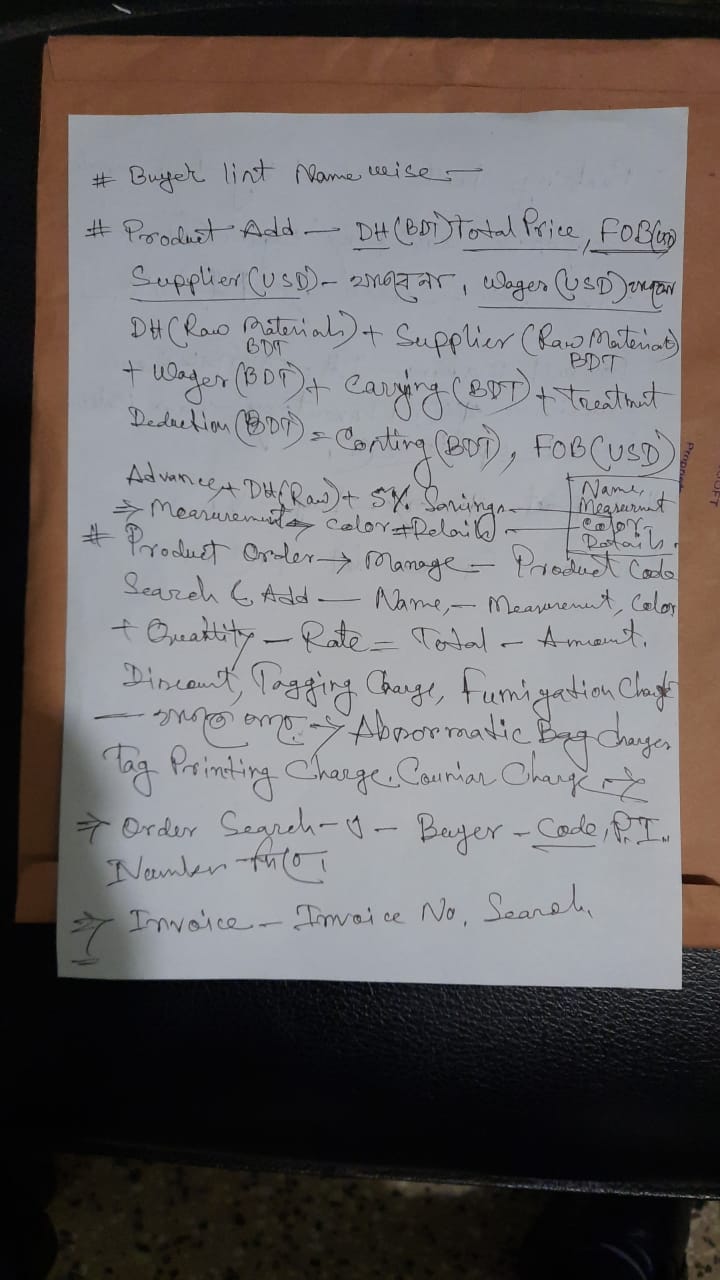 # Buyer list Name wise -
# Product Add — DH (BDT) Total Price, FOB (USD)
Supplier (USD) - থাকবে না, Wages (USD)
DH (Raw Materials) + Supplier (Raw Materials)
BDT BDT
+ Wages (BDT) + Carrying (BDT) + Treatmut
Deduction (BDT) = Costing (BDT), FOB (USD)
Advance + DH (Raw) + 5% Savings -
Name,
Measurmut
Color -
Details.
⇒ Measurement ⇒ Color + Details -
# Product Order → Manage - Product Code
Search & Add — Name, - Measurement, Color
+ Quantity - Rate = Total - Amount.
Discount, Tagging Charge, Fumigation Charge
— → Absormatic Bag charges
Tag Printing Charge, Couriar Charge →
⇒ Order Search - - Buyer - Code, P.I.
Number দিয়ে।
⇒ Invoice - Invoice No. Search.